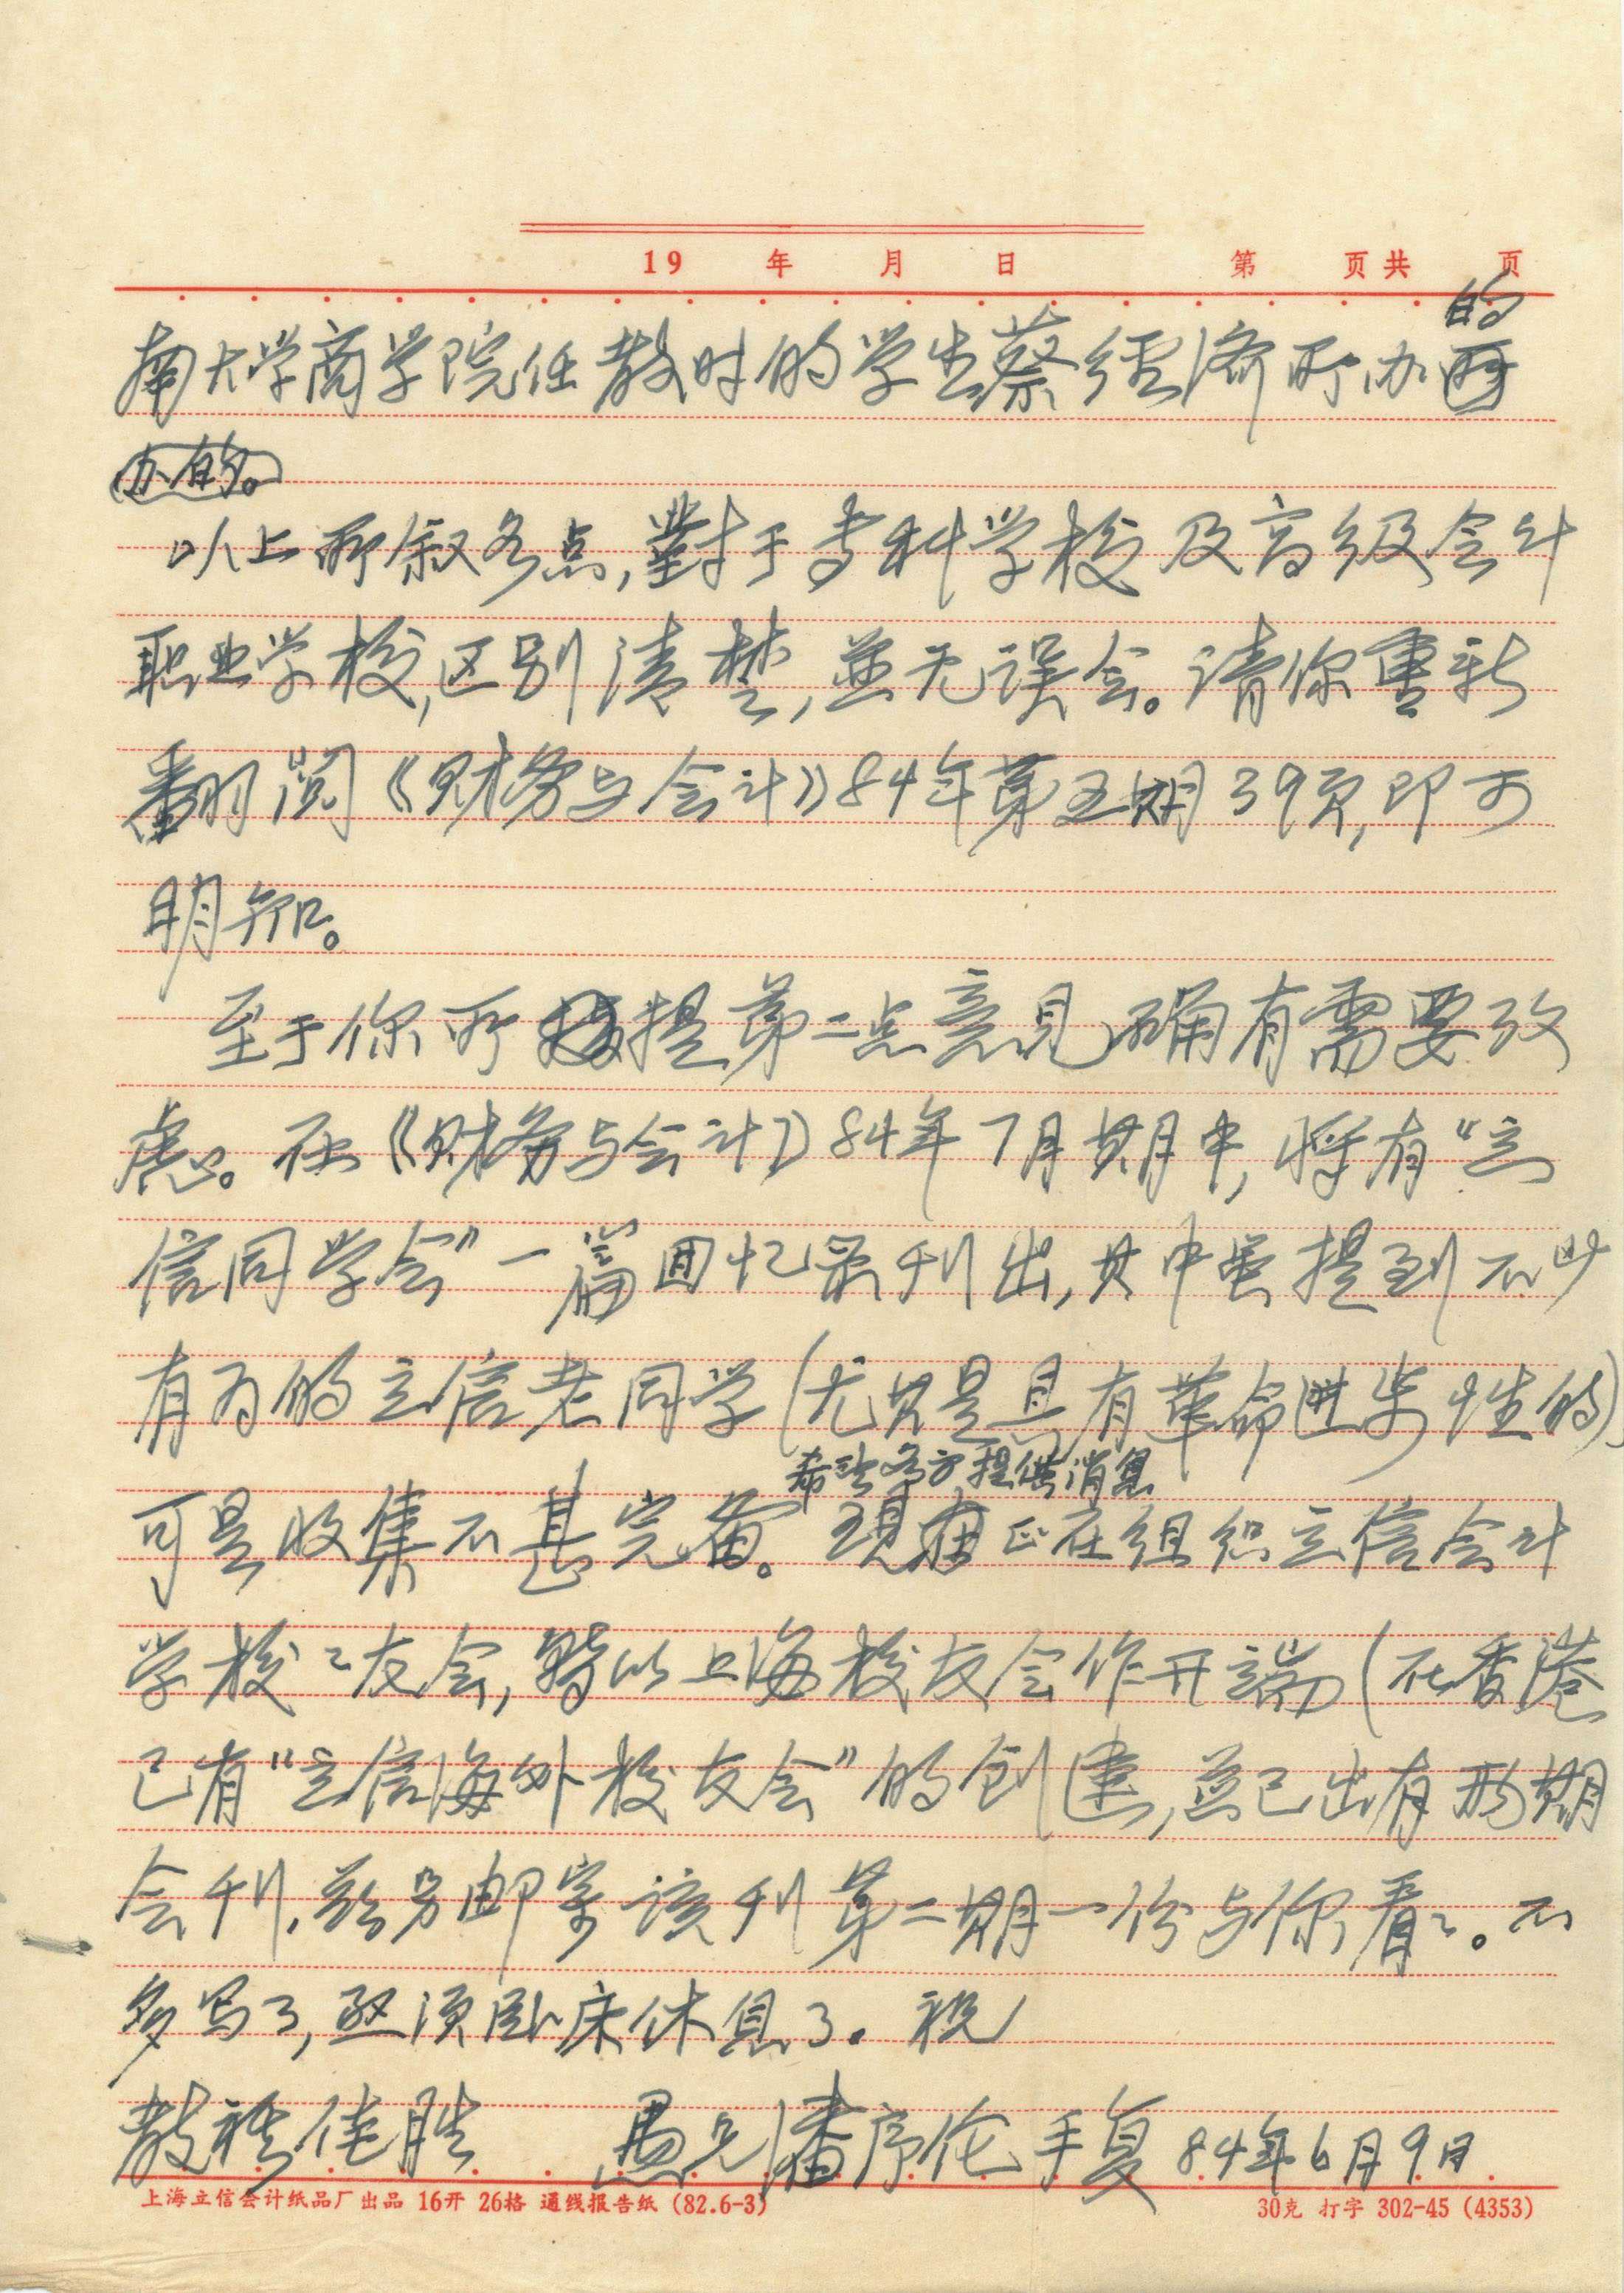 19 年 月 日 第 页共 页
南大学商学院任教时的学生蔡经济所办的
办的。
以上所叙各点,對于专科学校及高级会计
职业学校,区别清楚,並无误会。请你重新
翻阅《财务与会计》84年第五期39页,即可
明知。
至于你所提第二点意见,确有需要改
虑。在《财务与会计》84年7月期中,将有“立
信同学会”一篇回忆录刊出,其中虽提到不少
有为的立信老同学(尤其是具有革命进步性的),
希望各方提供消息
可是收集不甚完备。现在正在组织立信会计
学校校友会,暂以上海校友会作开端(在香港
已有“立信海外校友会”的创建,並已出有两期
会刊,兹另邮寄该刊第二期一份与你看看。不
多写了,亟须卧床休息了。祝
教祺佳胜 愚兄潘序伦手复 84年6月9日
上海立信会计纸品厂出品 16开 26格 通线报告纸 (82.6-3) 30克 打字 302-45 (4353)